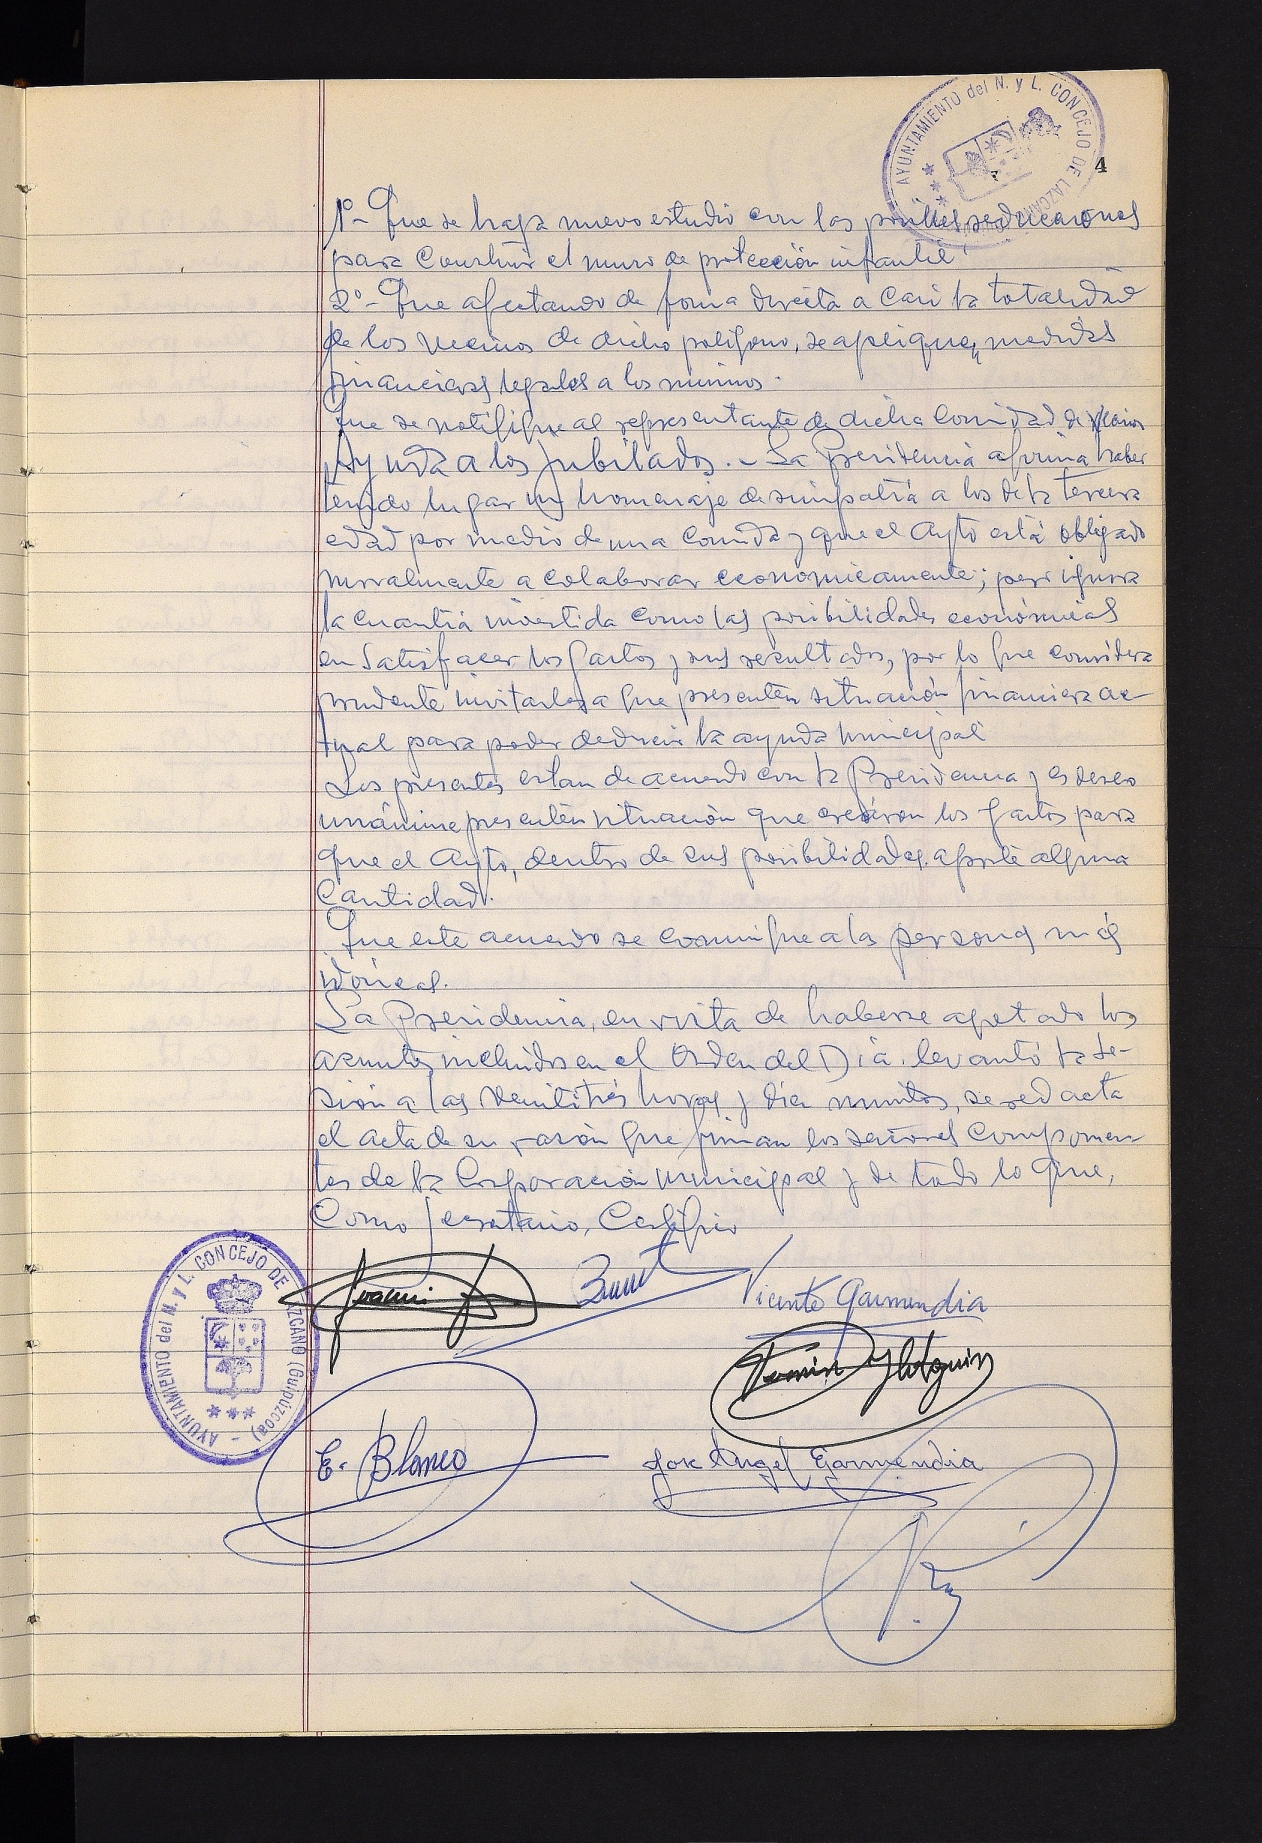 AYUNTAMIENTO del N. y L. CONCEJO DE LAZCANO
4
1º- Que se haga nuevo estudio con las posibles reducciones
para construir el muro de protección infantil.
2º- Que afectando de forma directa a casi la totalidad
de los vecinos de dicho polígono, se apliquen medidas
financieras legales a los mismos.
Que se notifique al representante de dicha Comunidad de Vecinos
Ayuda a los Jubilados.- La Presidencia afirma haber
tenido lugar un homenaje de simpatía a los de la tercera
edad por medio de una comida y que el Ayto está obligado
moralmente a colaborar económicamente; pero ignora
la cuantía invertida como las posibilidades económicas
en satisfacer los gastos y sus resultados, por lo que considera
prudente invitarles a que presenten situación financiera ac-
tual para poder deducir la ayuda municipal
Los presentes estan de acuerdo con la Presidencia y es deseo
unánime presenten situación que crearon los gastos para
que el Ayto, dentro de sus posibilidades aporte alguna
Cantidad.
Que este acuerdo se comunique a las personas más
idóneas.
La Presidencia, en vista de haberse agotado los
asuntos incluidos en el Orden del Día, levantó la se-
sión a las veintitrés horas y diez minutos, se redacta
el acta de su razón que firman los señores componen-
tes de la Corporación municipal y de todo lo que,
Como Secretario, Certifico
AYUNTAMIENTO del N. y L. CONCEJO DE LAZCANO (Guipúzcoa)
Vicente Garmendia
E. Blanco
Jose Angel Garmendia